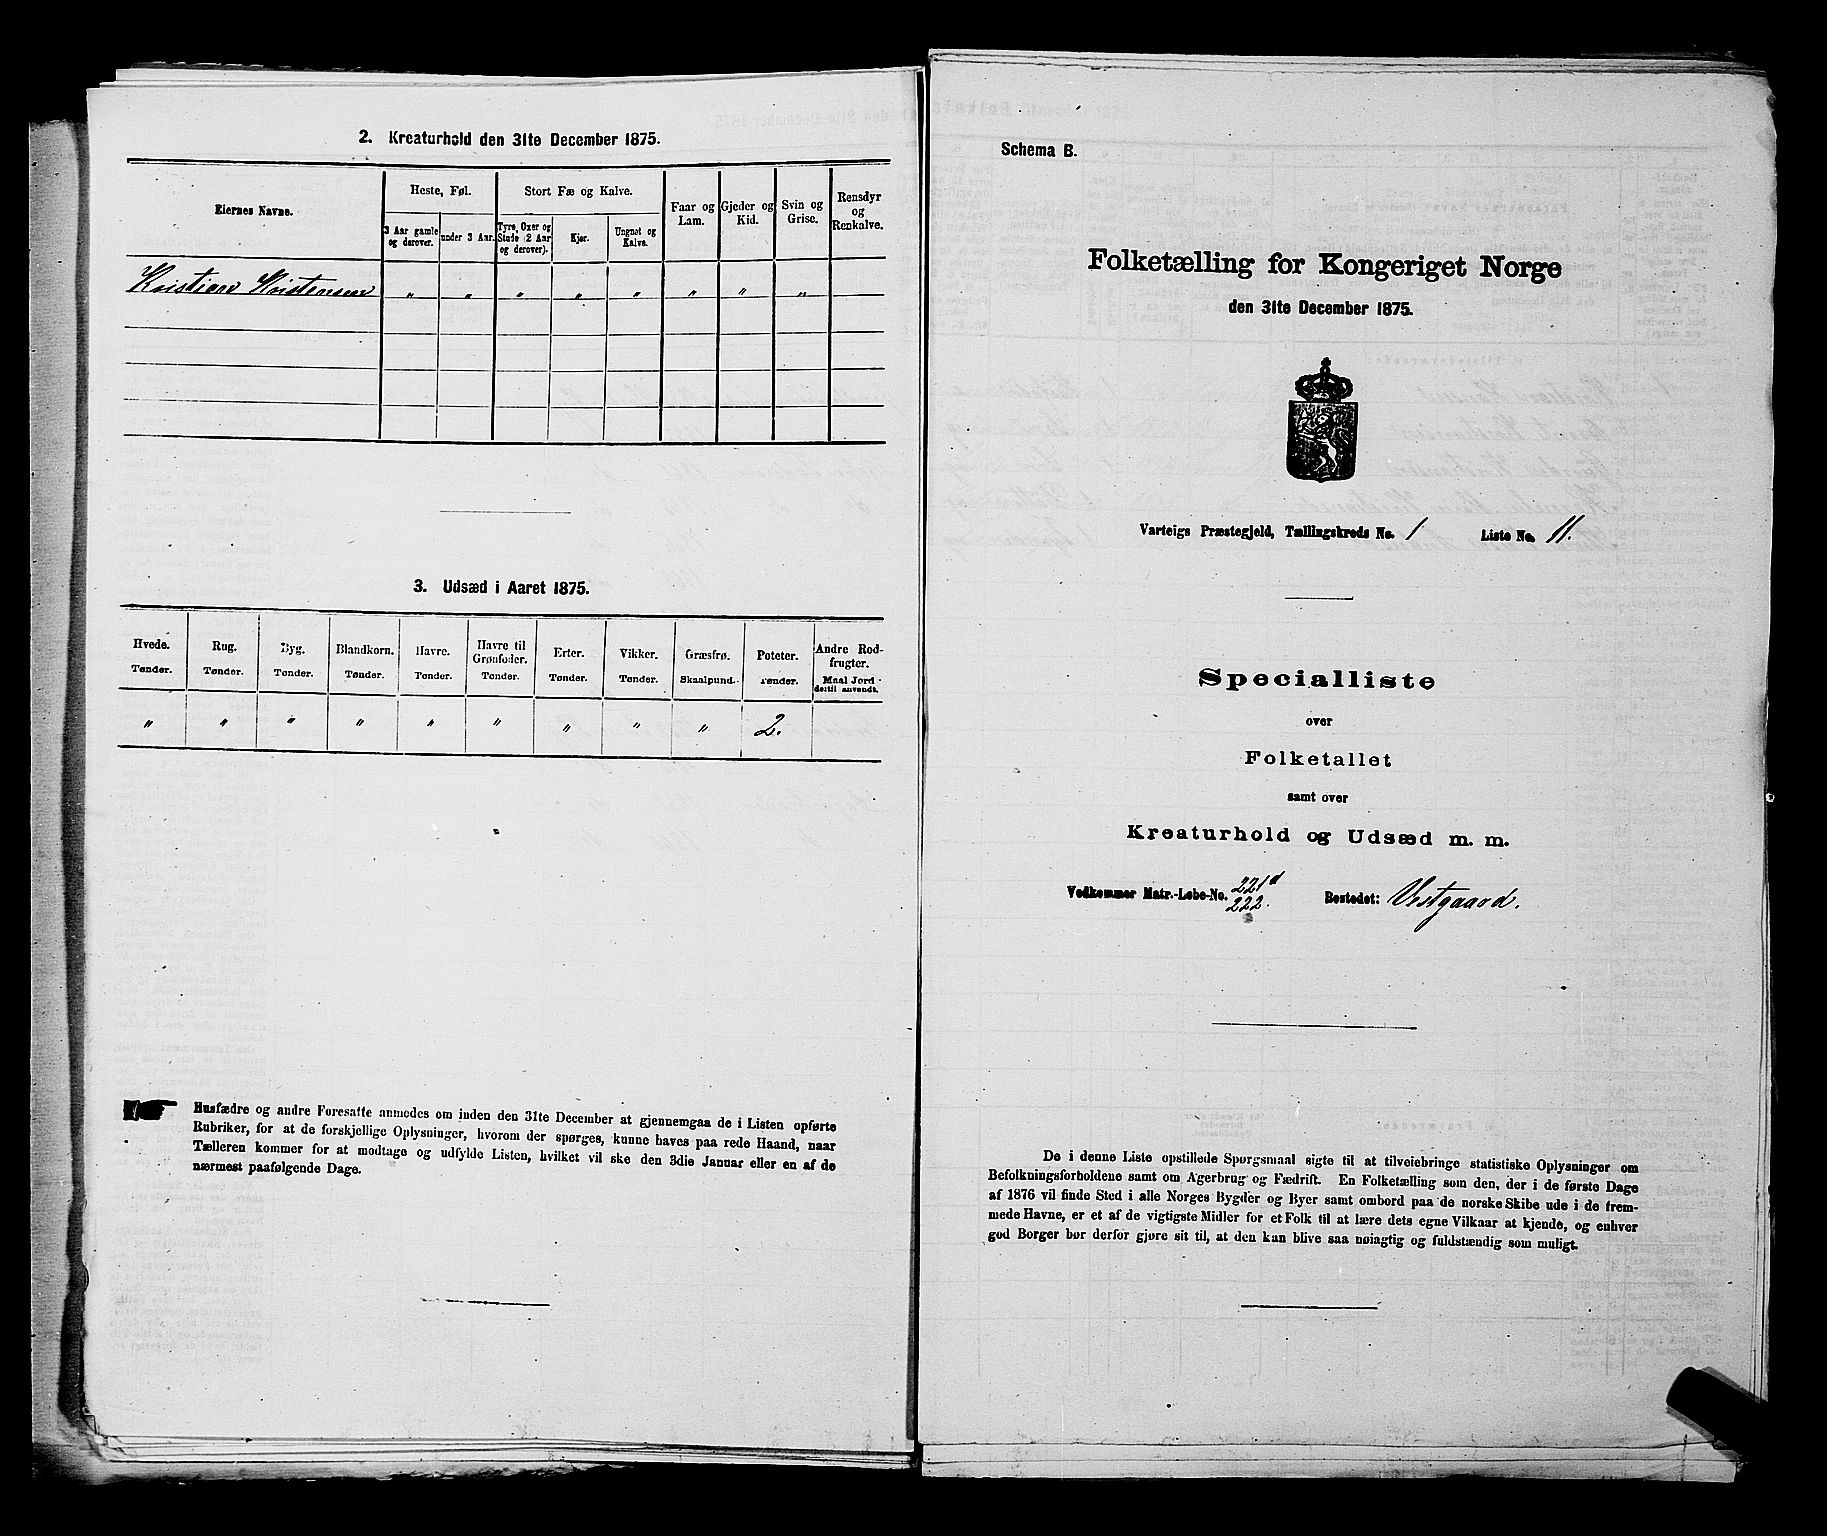 2. Kreaturhold den 31te December 1875.
Eiernes Navne.
Heste, Føl.
Stort Fæ og Kalve.
Faar og Lam.
Gjeder og Kid.
Svin og Grise.
Rensdyr og Renkalve.
3 Aar gamle og derover.
under 3 Aar.
Tyre, Oxer og Stude (2 Aar og derover).
Kjør.
Ungnøt og Kalve.
Kristian Kristensen " " " " " " " "
3. Udsæd i Aaret 1875.
Hvede. Rug. Byg. Blandkorn. Havre. Havre til Grønfoder. Erter. Vikker. Græsfrø. Poteter. Andre Rodfrugter.
Tønder. Tønder. Tønder. Tønder. Tønder. Tønder. Tønder. Tønder. Skaalpund. Tønder. Maal Jord dertil anvendt.
" " " " " " " " " 2.
Husfædre og andre Foresatte anmodes om inden den 31te December at gjennemgaa de i Listen opførte
Rubriker, for at de forskjellige Oplysninger, hvorom der spørges, kunne haves paa rede Haand, naar
Tælleren kommer for at modtage og udfylde Listen, hvilket vil ske den 3die Januar eller en af de
nærmest paafølgende Dage.
Schema B.
Folketælling for Kongeriget Norge
den 31te December 1875.
Varteigs Præstegjeld, Tællingskreds No. 1 Liste No. 11.
Specialliste
over
Folketallet
samt over
Kreaturhold og Udsæd m. m.
Vedkommer Matr.-Løbe-No. 221d 222. Bostedet: Vestgaard.
De i denne Liste opstillede Spørgsmaal sigte til at tilveiebringe statistiske Oplysninger om
Befolkningsforholdene samt om Agerbrug og Fædrift. En Folketælling som den, der i de første Dage
af 1876 vil finde Sted i alle Norges Bygder og Byer samt ombord paa de norske Skibe ude i de frem-
mede Havne, er et af de vigtigste Midler for et Folk til at lære dets egne Vilkaar at kjende, og enhver
god Borger bør derfor gjøre sit til, at den kan blive saa nøiagtig og fuldstændig som muligt.